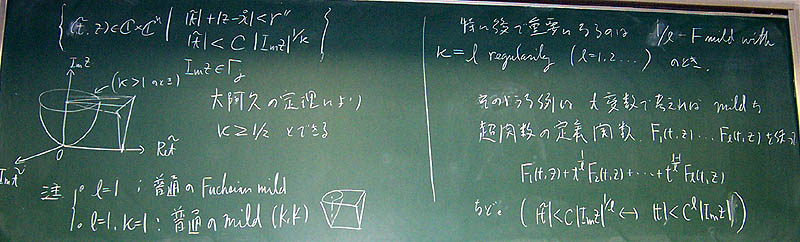 { (t̃, z) ∈ ℂ×ℂⁿ | |t̃| + |z - x̊| < r''
|t̃| < C |Im z|^{1/κ} }
Im z ∈ Γ_j
Im z
(κ > 1 のとき)
0
Re t̃
Im t̃
大阿久の定理により
κ ≥ 1/2 とできる
注 ∘ l=1 ; 普通の Fuchsian mild
∘ l=1, κ=1 : 普通の mild (K, K)
特に後で重要になるのは 1/l - F mild with
κ = l regularity (l=1,2...) のとき.
そのような例は 大変数で考えれば mild な
超関数の定義関数 F₁(t,z) ... F_l(t,z) を使って
F₁(t,z) + t^{1/l} F₂(t,z) + ... + t^{(l-1)/l} F_l(t,z)
など. ( |t̃| < C |Im z|^{1/l} ↔ |t| < C^l |Im z| )